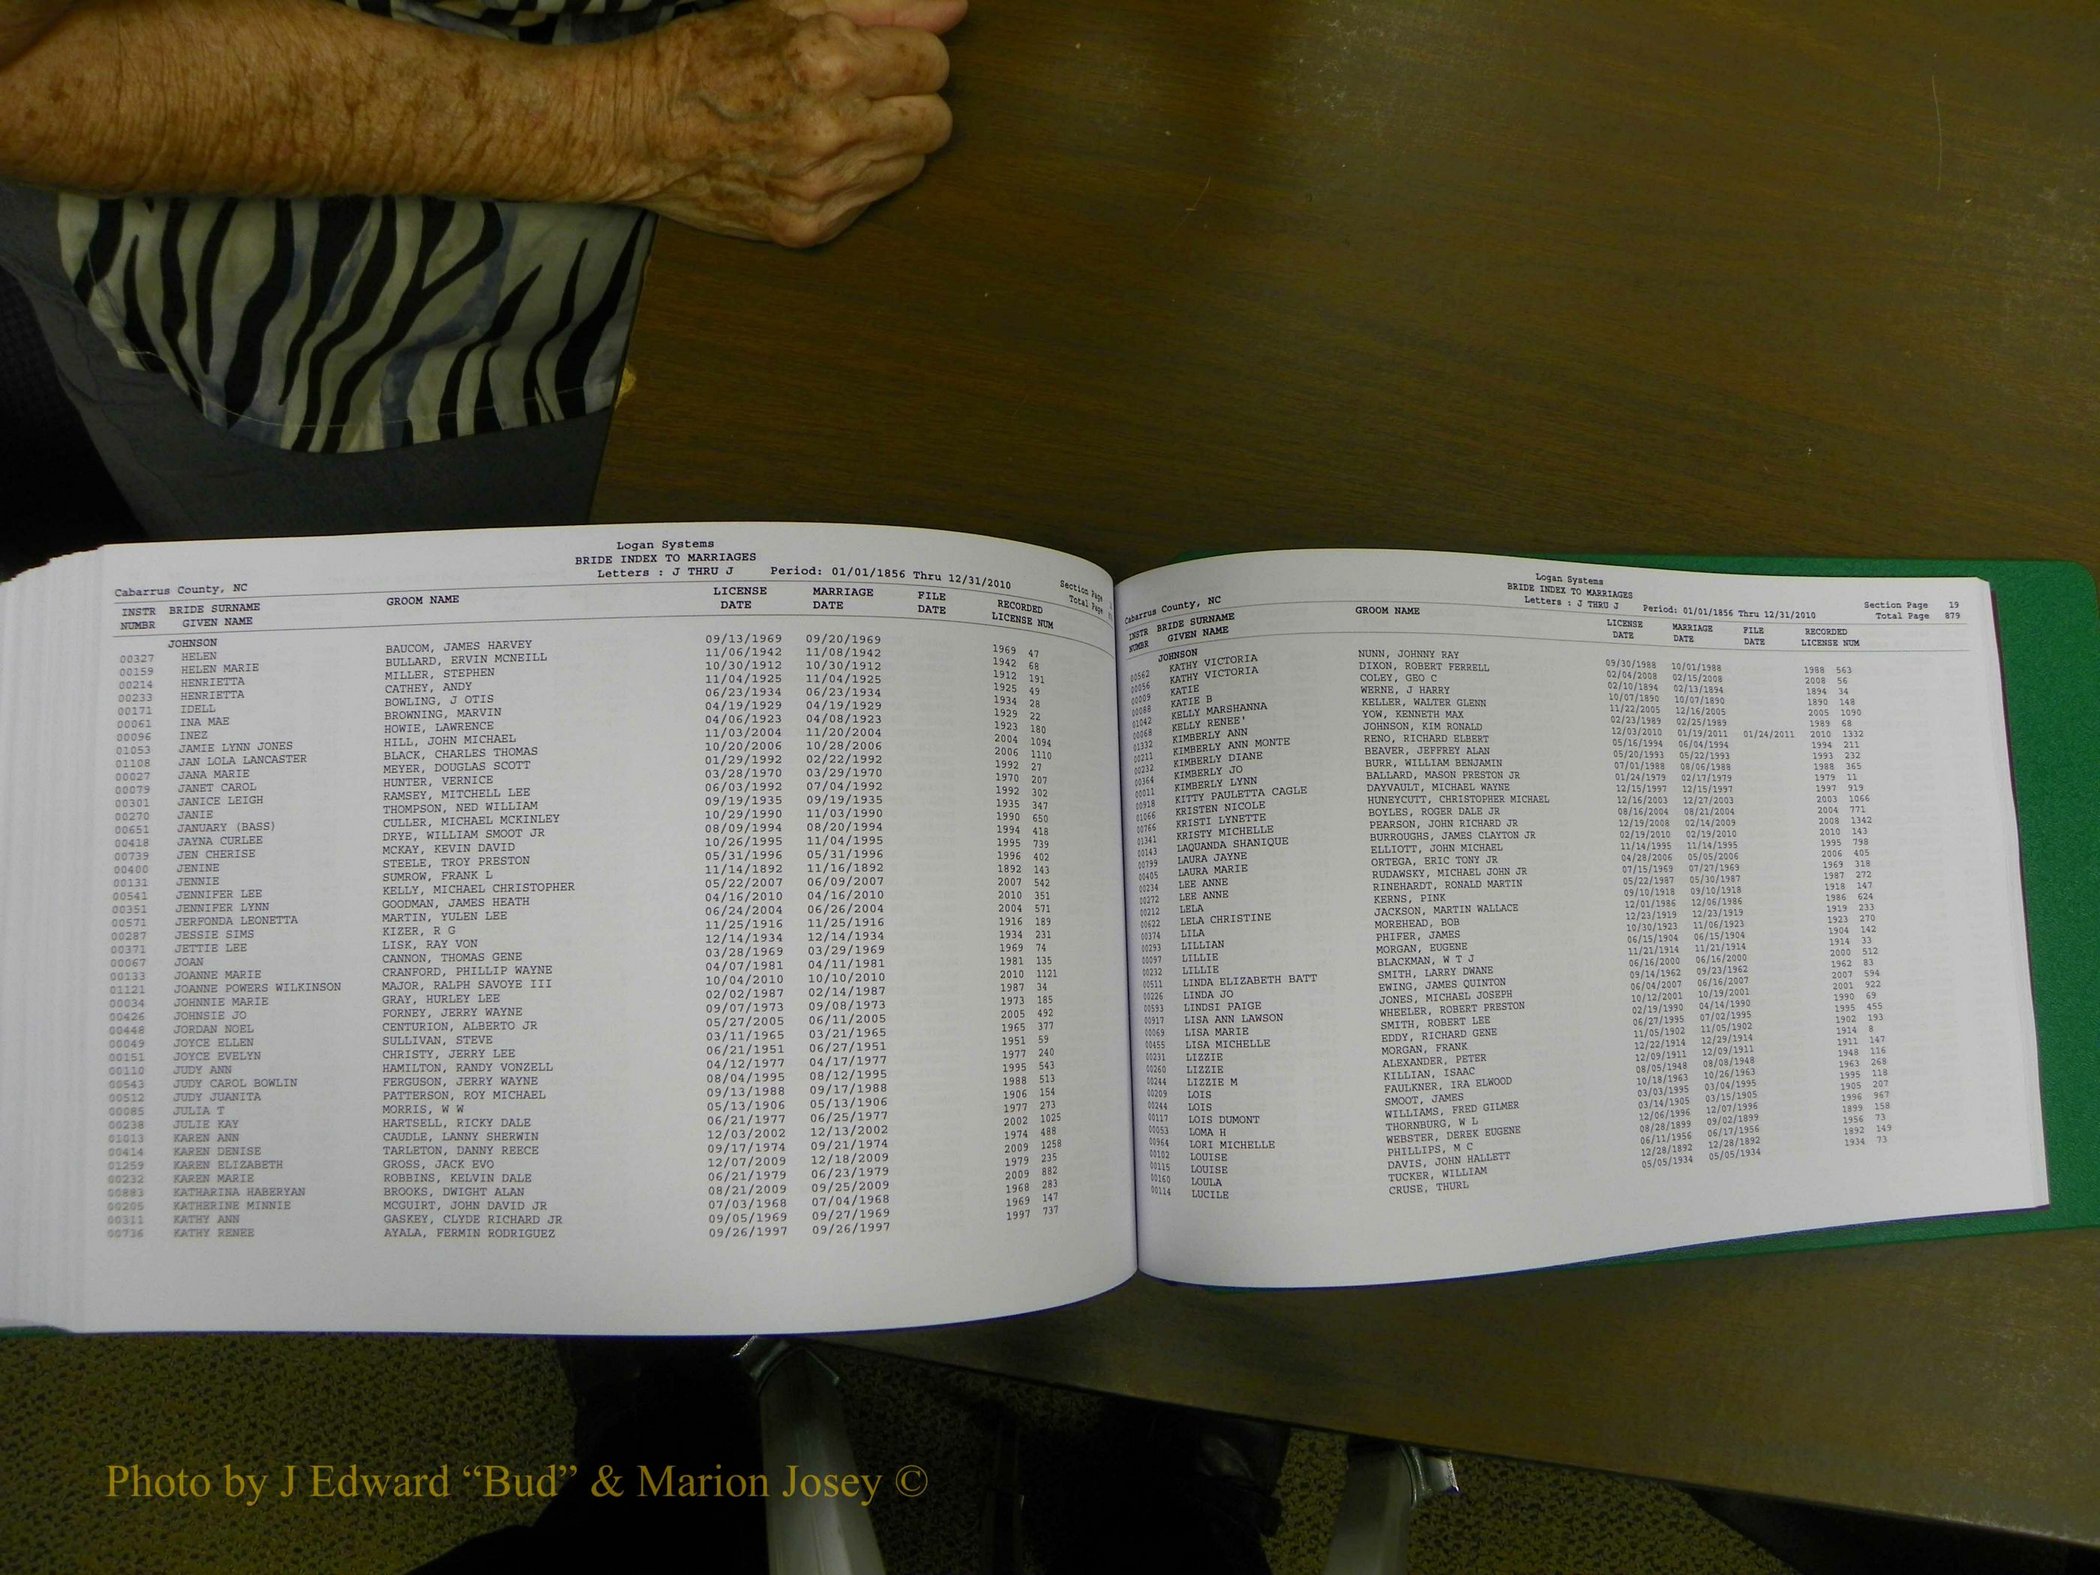 Logan Systems
BRIDE INDEX TO MARRIAGES
Letters : J THRU J Period: 01/01/1856 Thru 12/31/2010
Cabarrus County, NC Section Page
Total Page
INSTR BRIDE SURNAME GROOM NAME LICENSE MARRIAGE FILE RECORDED
NUMBR GIVEN NAME DATE DATE DATE LICENSE NUM
JOHNSON
00327 HELEN BAUCOM, JAMES HARVEY 09/13/1969 09/20/1969 1969 47
00159 HELEN MARIE BULLARD, ERVIN MCNEILL 11/06/1942 11/08/1942 1942 68
00214 HENRIETTA MILLER, STEPHEN 10/30/1912 10/30/1912 1912 191
00233 HENRIETTA CATHEY, ANDY 11/04/1925 11/04/1925 1925 49
00171 IDELL BOWLING, J OTIS 06/23/1934 06/23/1934 1934 28
00061 INA MAE BROWNING, MARVIN 04/19/1929 04/19/1929 1929 22
00096 INEZ HOWIE, LAWRENCE 04/06/1923 04/08/1923 1923 180
01053 JAMIE LYNN JONES HILL, JOHN MICHAEL 11/03/2004 11/20/2004 2004 1094
01108 JAN LOLA LANCASTER BLACK, CHARLES THOMAS 10/20/2006 10/28/2006 2006 1110
00027 JANA MARIE MEYER, DOUGLAS SCOTT 01/29/1992 02/22/1992 1992 27
00079 JANET CAROL HUNTER, VERNICE 03/28/1970 03/29/1970 1970 207
00301 JANICE LEIGH RAMSEY, MITCHELL LEE 06/03/1992 07/04/1992 1992 302
00270 JANIE THOMPSON, NED WILLIAM 09/19/1935 09/19/1935 1935 347
00651 JANUARY (BASS) CULLER, MICHAEL MCKINLEY 10/29/1990 11/03/1990 1990 650
00418 JAYNA CURLEE DRYE, WILLIAM SMOOT JR 08/09/1994 08/20/1994 1994 418
00739 JEN CHERISE MCKAY, KEVIN DAVID 10/26/1995 11/04/1995 1995 739
00400 JENINE STEELE, TROY PRESTON 05/31/1996 05/31/1996 1996 402
00131 JENNIE SUMROW, FRANK L 11/14/1892 11/16/1892 1892 143
00541 JENNIFER LEE KELLY, MICHAEL CHRISTOPHER 05/22/2007 06/09/2007 2007 542
00351 JENNIFER LYNN GOODMAN, JAMES HEATH 04/16/2010 04/16/2010 2010 351
00571 JERFONDA LEONETTA MARTIN, YULEN LEE 06/24/2004 06/26/2004 2004 571
00287 JESSIE SIMS KIZER, R G 11/25/1916 11/25/1916 1916 189
00371 JETTIE LEE LISK, RAY VON 12/14/1934 12/14/1934 1934 231
00067 JOAN CANNON, THOMAS GENE 03/28/1969 03/29/1969 1969 74
00133 JOANNE MARIE CRANFORD, PHILLIP WAYNE 04/07/1981 04/11/1981 1981 135
01121 JOANNE POWERS WILKINSON MAJOR, RALPH SAVOYE III 10/04/2010 10/10/2010 2010 1121
00034 JOHNNIE MARIE GRAY, HURLEY LEE 02/02/1987 02/14/1987 1987 34
00426 JOHNSIE JO FORNEY, JERRY WAYNE 09/07/1973 09/08/1973 1973 185
00448 JORDAN NOEL CENTURION, ALBERTO JR 05/27/2005 06/11/2005 2005 492
00049 JOYCE ELLEN SULLIVAN, STEVE 03/11/1965 03/21/1965 1965 377
00151 JOYCE EVELYN CHRISTY, JERRY LEE 06/21/1951 06/27/1951 1951 59
00110 JUDY ANN HAMILTON, RANDY VONZELL 04/12/1977 04/17/1977 1977 240
00543 JUDY CAROL BOWLIN FERGUSON, JERRY WAYNE 08/04/1995 08/12/1995 1995 543
00512 JUDY JUANITA PATTERSON, ROY MICHAEL 09/13/1988 09/17/1988 1988 513
00085 JULIA T MORRIS, W W 05/13/1906 05/13/1906 1906 154
00238 JULIE KAY HARTSELL, RICKY DALE 06/21/1977 06/25/1977 1977 273
01013 KAREN ANN CAUDLE, LANNY SHERWIN 12/03/2002 12/13/2002 2002 1025
00414 KAREN DENISE TARLETON, DANNY REECE 09/17/1974 09/21/1974 1974 488
01259 KAREN ELIZABETH GROSS, JACK EVO 12/07/2009 12/18/2009 2009 1258
00232 KAREN MARIE ROBBINS, KELVIN DALE 06/21/1979 06/23/1979 1979 235
00883 KATHARINA HABERYAN BROOKS, DWIGHT ALAN 08/21/2009 09/25/2009 2009 882
00205 KATHERINE MINNIE MCGUIRT, JOHN DAVID JR 07/03/1968 07/04/1968 1968 283
00311 KATHY ANN GASKEY, CLYDE RICHARD JR 09/05/1969 09/27/1969 1969 147
00736 KATHY RENEE AYALA, FERMIN RODRIGUEZ 09/26/1997 09/26/1997 1997 737
Logan Systems
BRIDE INDEX TO MARRIAGES
Letters : J THRU J Period: 01/01/1856 Thru 12/31/2010
Cabarrus County, NC Section Page 19
Total Page 879
INSTR BRIDE SURNAME GROOM NAME LICENSE MARRIAGE FILE RECORDED
NUMBR GIVEN NAME DATE DATE DATE LICENSE NUM
JOHNSON
00562 KATHY VICTORIA NUNN, JOHNNY RAY 09/30/1988 10/01/1988 1988 563
00056 KATHY VICTORIA DIXON, ROBERT FERRELL 02/04/2008 02/15/2008 2008 56
00009 KATIE COLEY, GEO C 02/10/1894 02/13/1894 1894 34
00088 KATIE B WERNE, J HARRY 10/07/1890 10/07/1890 1890 148
01042 KELLY MARSHANNA KELLER, WALTER GLENN 11/22/2005 12/16/2005 2005 1090
00068 KELLY RENEE' YOW, KENNETH MAX 02/23/1989 02/25/1989 1989 68
01332 KIMBERLY ANN JOHNSON, KIM RONALD 12/03/2010 01/19/2011 01/24/2011 2010 1332
00211 KIMBERLY ANN MONTE RENO, RICHARD ELBERT 05/16/1994 06/04/1994 1994 211
00232 KIMBERLY DIANE BEAVER, JEFFREY ALAN 05/20/1993 05/22/1993 1993 232
00364 KIMBERLY JO BURR, WILLIAM BENJAMIN 07/01/1988 08/06/1988 1988 365
00011 KIMBERLY LYNN BALLARD, MASON PRESTON JR 01/24/1979 02/17/1979 1979 11
00918 KITTY PAULETTA CAGLE DAYVAULT, MICHAEL WAYNE 12/15/1997 12/15/1997 1997 919
01066 KRISTEN NICOLE HUNEYCUTT, CHRISTOPHER MICHAEL 12/16/2003 12/27/2003 2003 1066
00766 KRISTI LYNETTE BOYLES, ROGER DALE JR 08/16/2004 08/21/2004 2004 771
01341 KRISTY MICHELLE PEARSON, JOHN RICHARD JR 12/19/2008 02/14/2009 2008 1342
00143 LAQUANDA SHANIQUE BURROUGHS, JAMES CLAYTON JR 02/19/2010 02/19/2010 2010 143
00799 LAURA JAYNE ELLIOTT, JOHN MICHAEL 11/14/1995 11/14/1995 1995 798
00405 LAURA MARIE ORTEGA, ERIC TONY JR 04/28/2006 05/05/2006 2006 405
00234 LEE ANNE RUDAWSKY, MICHAEL JOHN JR 07/15/1969 07/27/1969 1969 318
00272 LEE ANNE RINEHARDT, RONALD MARTIN 05/22/1987 05/30/1987 1987 272
00212 LELA KERNS, PINK 09/10/1918 09/10/1918 1918 147
00622 LELA CHRISTINE JACKSON, MARTIN WALLACE 12/01/1986 12/06/1986 1986 624
00374 LILA MOREHEAD, BOB 12/23/1919 12/23/1919 1919 233
00293 LILLIAN PHIFER, JAMES 10/30/1923 11/06/1923 1923 270
00097 LILLIE MORGAN, EUGENE 06/15/1904 06/15/1904 1904 142
00232 LILLIE BLACKMAN, W T J 11/21/1914 11/21/1914 1914 33
00511 LINDA ELIZABETH BATT SMITH, LARRY DWANE 06/16/2000 06/16/2000 2000 512
00226 LINDA JO EWING, JAMES QUINTON 09/14/1962 09/23/1962 1962 83
00593 LINDSI PAIGE JONES, MICHAEL JOSEPH 06/04/2007 06/16/2007 2007 594
00917 LISA ANN LAWSON WHEELER, ROBERT PRESTON 10/12/2001 10/19/2001 2001 922
00069 LISA MARIE SMITH, ROBERT LEE 02/19/1990 04/14/1990 1990 69
00455 LISA MICHELLE EDDY, RICHARD GENE 06/27/1995 07/02/1995 1995 455
00231 LIZZIE MORGAN, FRANK 11/05/1902 11/05/1902 1902 193
00260 LIZZIE ALEXANDER, PETER 12/22/1914 12/29/1914 1914 8
00244 LIZZIE M KILLIAN, ISAAC 12/09/1911 12/09/1911 1911 147
00209 LOIS FAULKNER, IRA ELWOOD 08/05/1948 08/08/1948 1948 116
00244 LOIS SMOOT, JAMES 10/18/1963 10/26/1963 1963 268
00117 LOIS DUMONT WILLIAMS, FRED GILMER 03/03/1995 03/04/1995 1995 118
00053 LOMA H THORNBURG, W L 03/14/1905 03/15/1905 1905 207
00964 LORI MICHELLE WEBSTER, DEREK EUGENE 12/06/1996 12/07/1996 1996 967
00102 LOUISE PHILLIPS, M C 08/28/1899 09/02/1899 1899 158
00115 LOUISE DAVIS, JOHN HALLETT 06/11/1956 06/17/1956 1956 73
00160 LOULA TUCKER, WILLIAM 12/28/1892 12/28/1892 1892 149
00114 LUCILE CRUSE, THURL 05/05/1934 05/05/1934 1934 73
Photo by J Edward “Bud” & Marion Josey ©